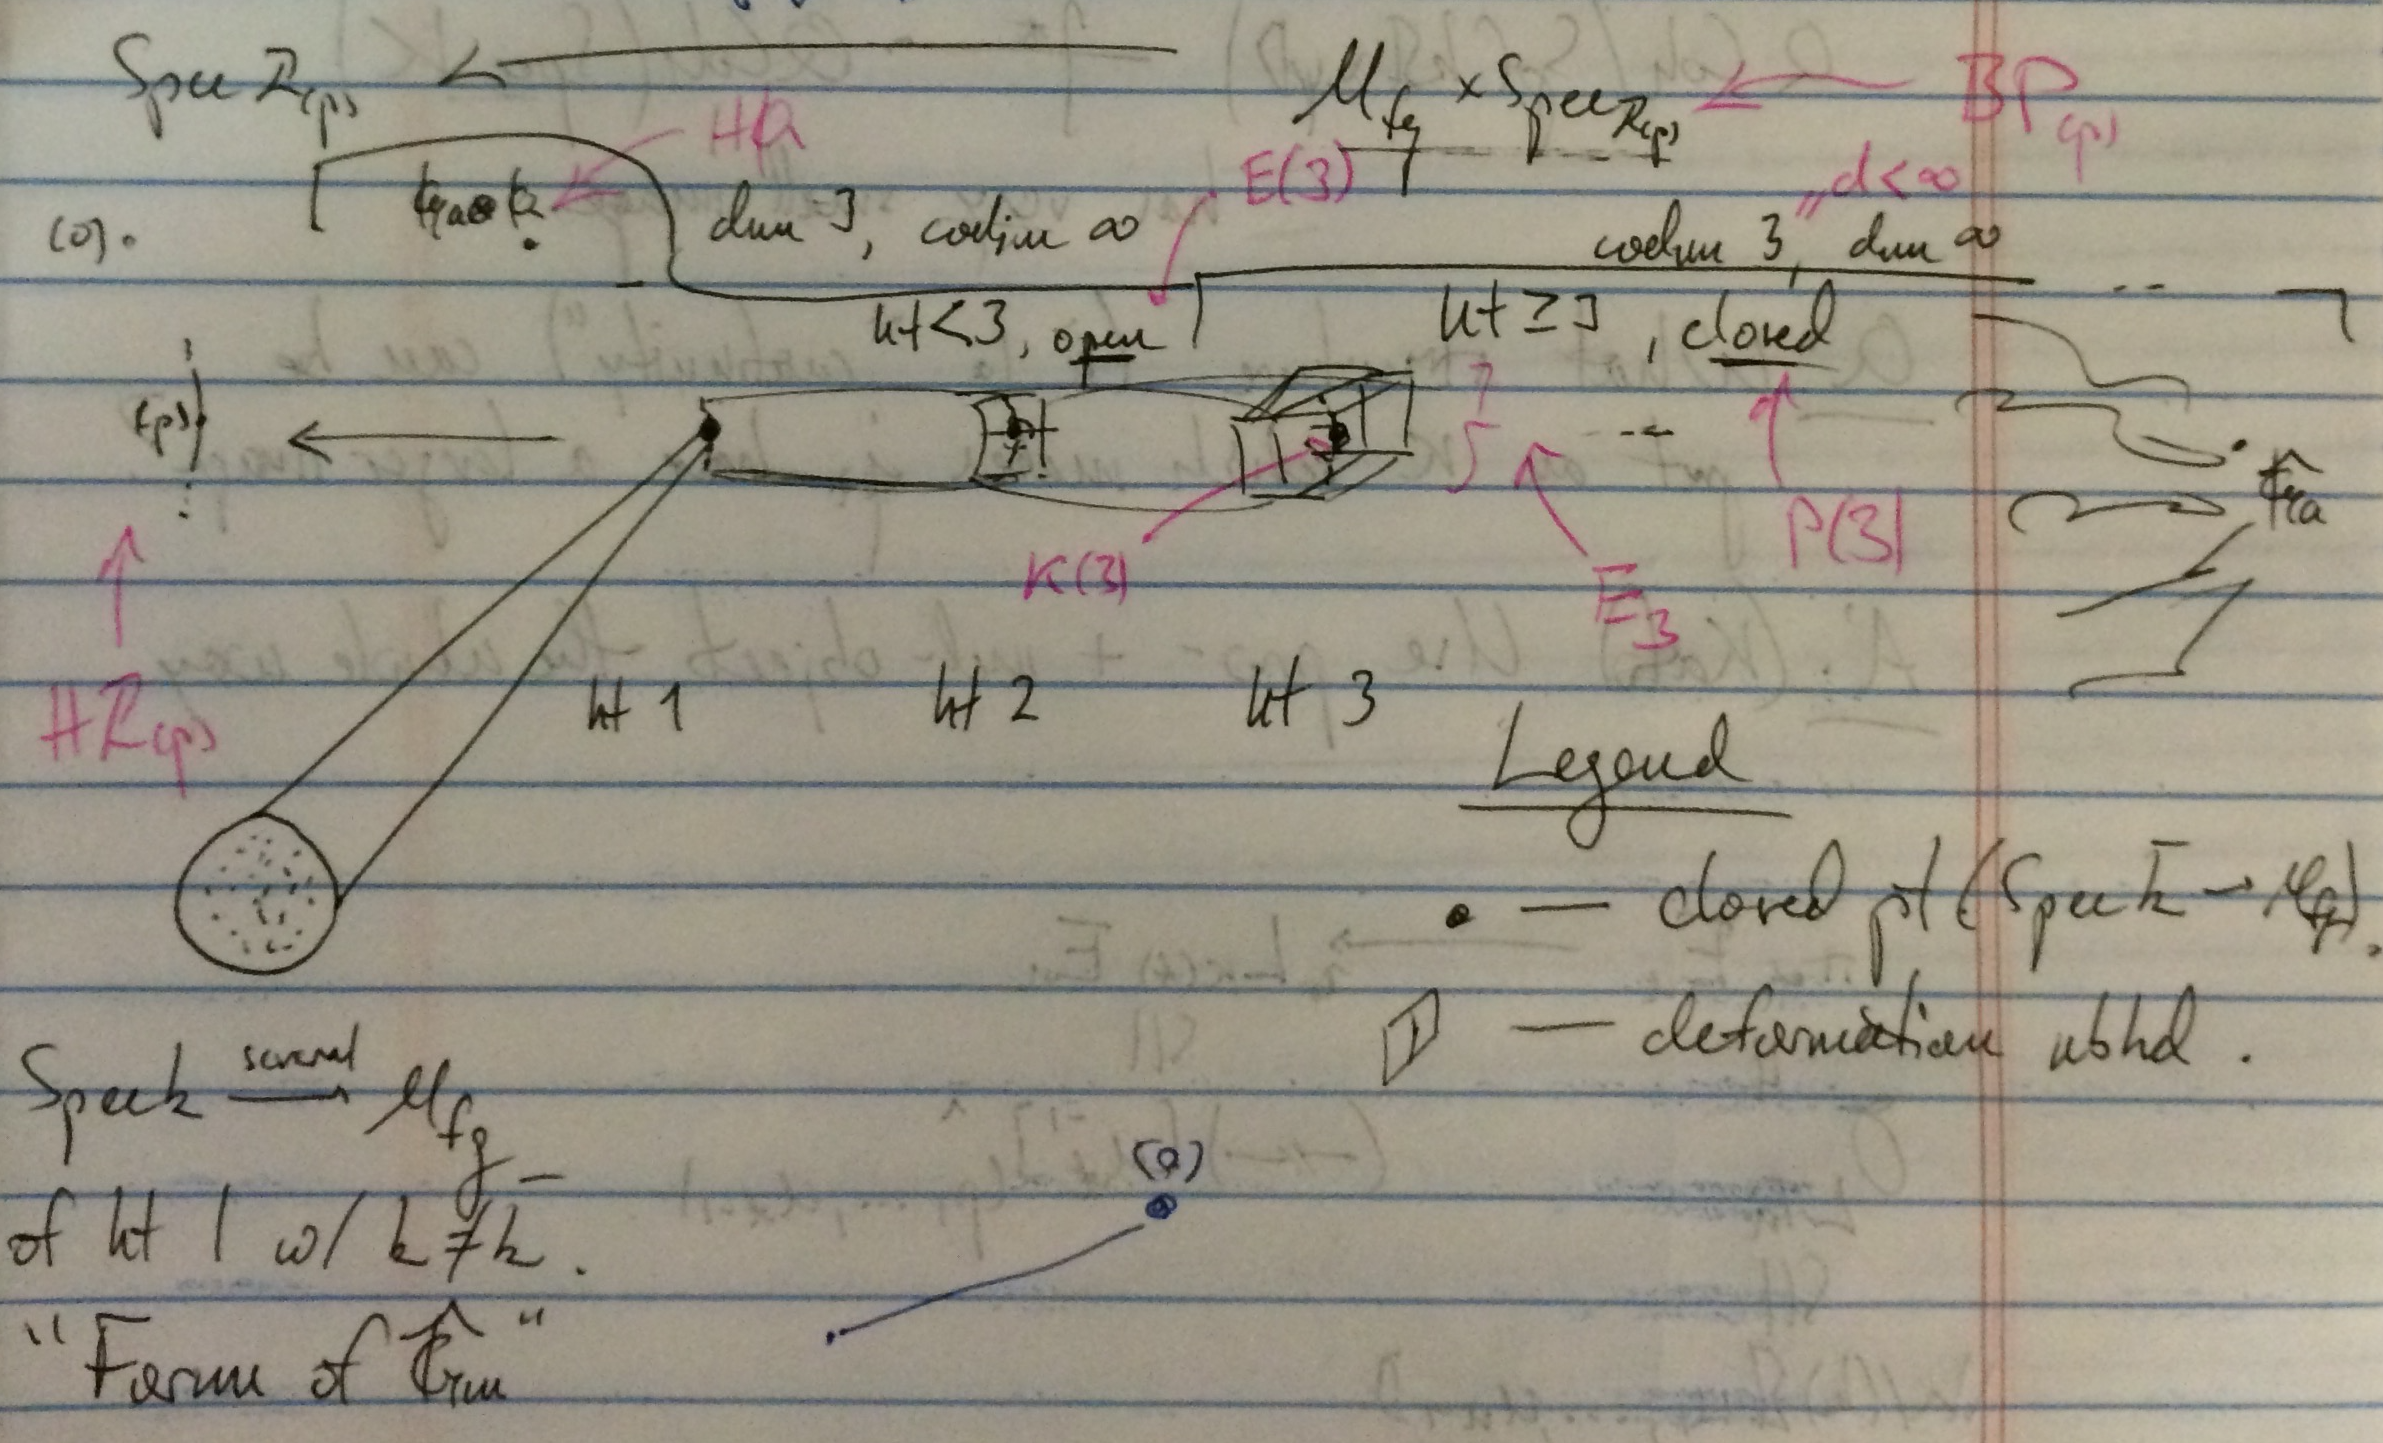 Spec Z(p) ← M_fg × Spec Z(p) ← BP(p)
HQ
E(3) "d<∞
(0). dim 3, codim ∞ codim 3, dim ∞ ...
ht<3, open ht ≥ 3, closed
(p) ← ... Ĝa
K(3) P(3)
E_3
HZ(p) ht 1 ht 2 ht 3
Legend
• — closed pt (Spec k̄ → M_fg).
— deformation nbhd.
Spec k several → M_fg
(0)
of ht 1 w/ k ≠ k̄.
"Form of Ĝm"